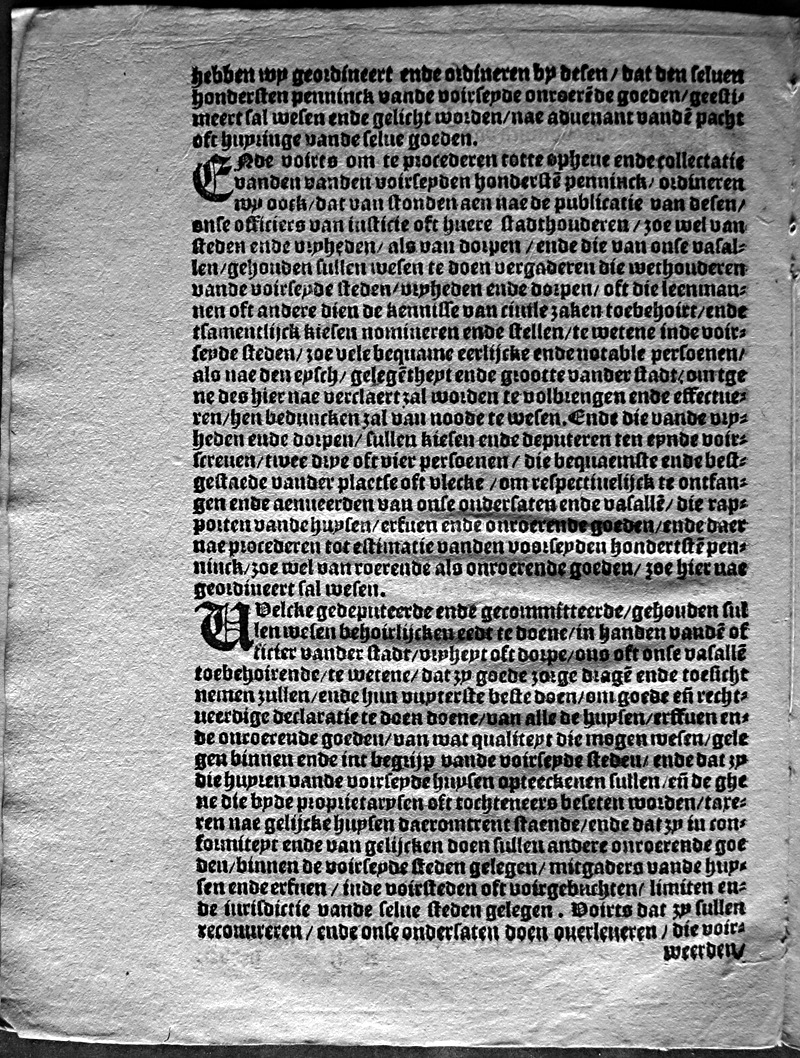 hebben wy geordineert ende ordineren by desen/ dat den seluen
hondersten penninck vande voirseyde onroerẽde goeden/geesti-
meert sal wesen ende gelicht worden/nae aduenant vandẽ pacht
oft huyringe vande selue goeden.
ENde voirts om te procederen totte opheue ende collectatie
vanden vanden voirseyden honderstẽ penninck/ ordineren
wy oock/dat van stonden aen nae de publicatie van desen/
onse officiers van iusticie oft huere stadthouderen/ zoe wel van
steden ende vryheden/ als van dorpen/ ende die van onse vasal-
len/gehouden sullen wesen te doen vergaderen die wethouderen
vande voirseyde steden/vryheden ende dorpen/ oft die leenman-
nen oft andere dien de kennisse van ciuile zaken toebehoirt/ende
tsamentlijck kiesen nomineren ende stellen/te wetene inde voir-
seyde steden/ zoe vele bequame eerlijcke ende notable persoenen/
als nae den eysch/ gelegẽtheyt ende grootte vander stadt/ om tge
ne des hier nae verclaert zal worden te volbrengen ende effectue-
ren/hen beduncken zal van noode te wesen. Ende die vande vry-
heden ende dorpen/ sullen kiesen ende deputeren ten eynde voir-
screuen/twee drye oft vier persoenen/ die bequaemste ende best-
gestaede vander plaetse oft vlecke/om respectiuelijck te ontfan-
gen ende aenueerden van onse ondersaten ende vasallẽ/ die rap-
porten vande huysen/erfuen ende onroerende goeden/ende daer
nae procederen tot estimatie vanden voorseyden hondertstẽ pen-
ninck/zoe wel van roerende als onroerende goeden/ zoe hier nae
geordineert sal wesen.
VVelcke gedeputeerde ende gecommitteerde/gehouden sul
len wesen behoirlijcken eedt te doene/in handen vandẽ of
ficier vander stadt/vryheyt oft dorpe/ons oft onse vasallẽ
toebehoirende/te wetene/ dat zy goede zorge dragẽ ende toesicht
nemen zullen/ende hun vuyterste beste doen/om goede eñ recht-
ueerdige declaratie te doen doene/van alle de huysen/erffuen en-
de onroerende goeden/van wat qualiteyt die mogen wesen/gele
gen binnen ende int begrijp vande voirseyde steden/ ende dat zy
die huyren vande voirseyde huysen opteeckenen sullen/eñ de ghe
ne die byde proprietarysen oft tochteneers beseten worden/taxe-
ren nae gelijcke huysen daeromtrent staende/ende dat zy in con-
formiteyt ende van gelijcken doen sullen andere onroerende goe
den/binnen de voirseyde steden gelegen/ mitgaders vande huy-
sen ende erfuen/ inde voirsteden oft voirgebuchten/ limiten en-
de iurisdictie vande selue steden gelegen. Voirts dat zy sullen
recouureren/ ende onse ondersaten doen ouerleueren/ die voir-
weerden/